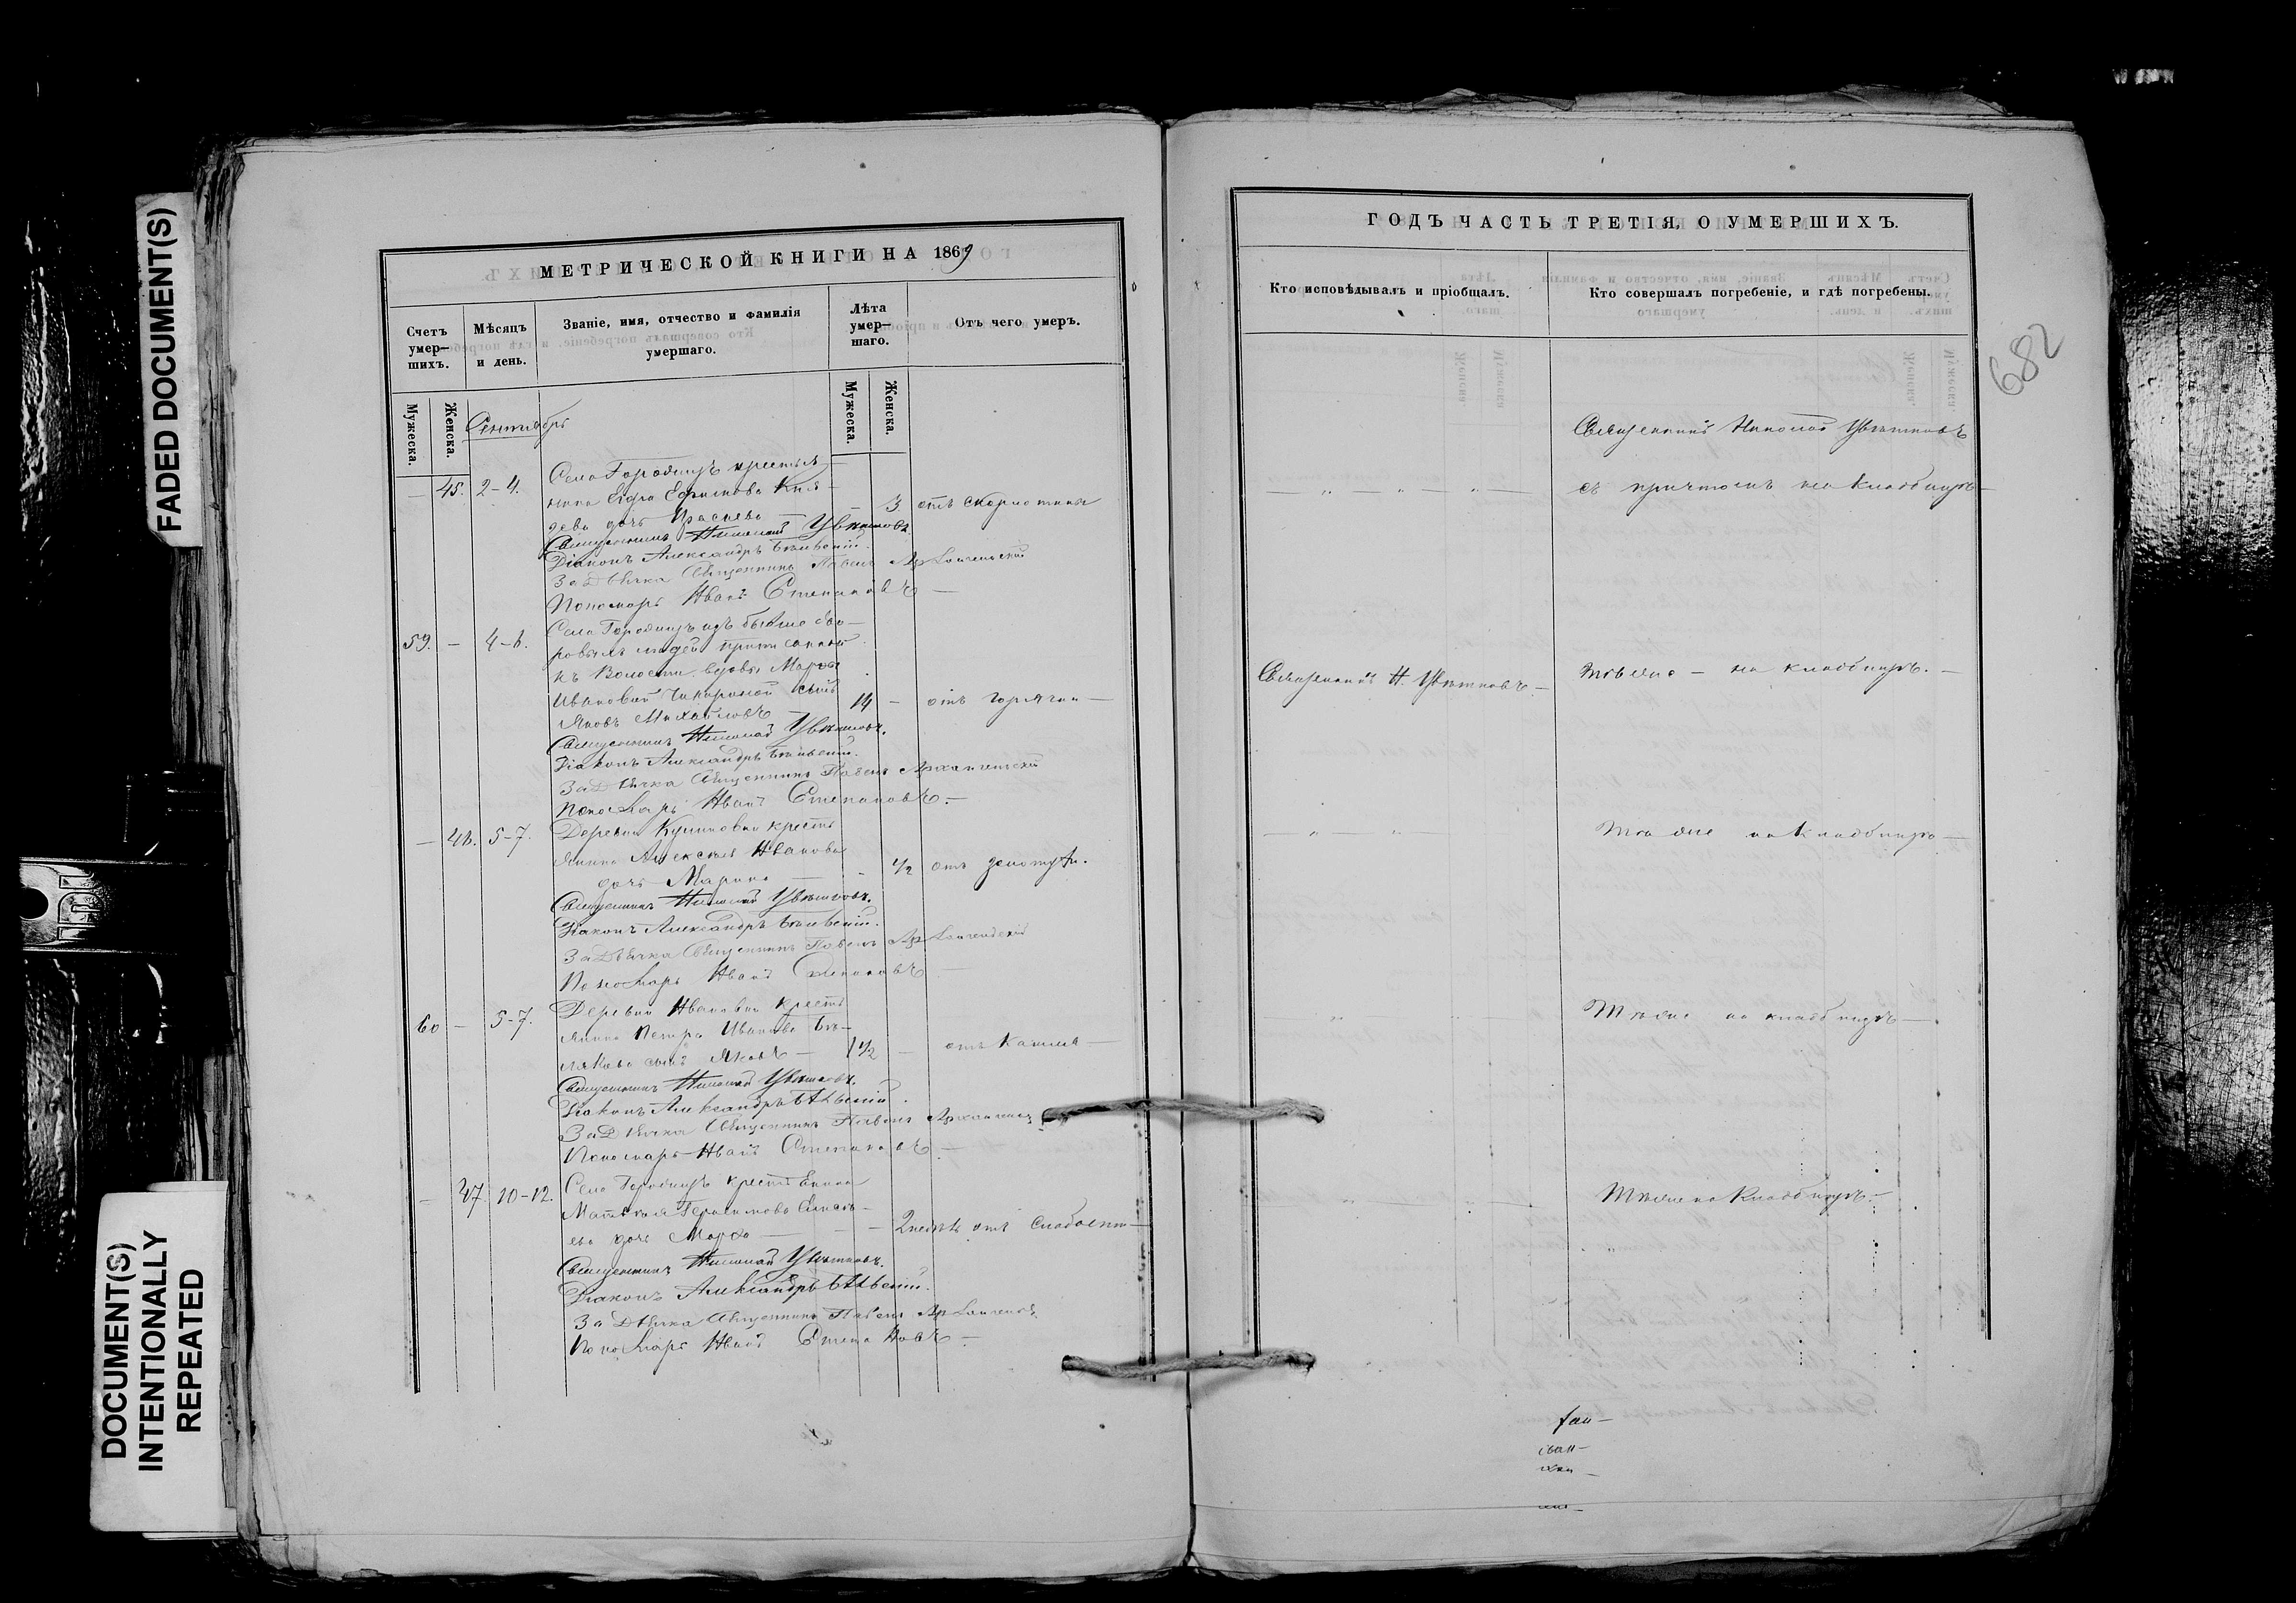 FADED DOCUMENT(S)
DOCUMENT(S)
INTENTIONALLY
REPEATED
МЕТРИЧЕСКОЙ КНИГИ НА 1869
Счетъ умер-шихъ.
Мѣсяцъ и день.
Званіе, имя, отчество и фамилія умершаго.
Лѣта умер-шаго.
Отъ чего умеръ.
Мужеска.
Женска.
Мужеска.
Женска.
Сентябрь
Села Городищъ крестья-
— 45. 2-4. нина Егора Ефимова
дочь — 3 отъ скарлатины
Священникъ Николай Цвѣтковъ
Діаконъ Александръ Бѣлевскій.
За Дьячка Священникъ Павелъ Архангельскій
Пономарь Иванъ Степановъ —
Села Городищъ изъ бывшихъ дво-
59. — 4-6. ровыхъ людей приписанной
къ Волости вдовы Марѳы
Ивановой сынъ
Яковъ Михайловъ — 14 — отъ горячки —
Священникъ Николай Цвѣтковъ.
Діаконъ Александръ Бѣлевскій.
За Дьячка Священникъ Павелъ Архангельскій
Пономарь Иванъ Степановъ. —
— 46. 5-7. Деревни крестья
янина Алексѣя Иванова
дочь Марина — 1/2 отъ золотухи.
Священникъ Николай Цвѣтковъ.
Діаконъ Александръ Бѣлевскій.
За Дьячка Священникъ Павелъ Архангельскій
Пономарь Иванъ Степановъ —
60 — 5-7. Деревни Ивановки крестъ
янина Петра Иванова Бѣ-
лякова сынъ Яковъ — 1 1/2 — отъ кашля —
Священникъ Николай Цвѣтковъ.
Діаконъ Александръ Бѣлевскій.
За Дьячка Священникъ Павелъ
Пономарь Иванъ Степановъ —
— 47 10-12. Села Городищъ крестьянина
Матвѣя Герасимова
ева дочь Марѳа — 2 недѣль отъ слабости —
Священникъ Николай Цвѣтковъ.
Діаконъ Александръ Бѣлевскій.
За Дьячка Священникъ Павелъ
Пономарь Иванъ Степановъ —
ГОДЪ ЧАСТЬ ТРЕТІЯ, О УМЕРШИХЪ.
Кто исповѣдывалъ и пріобщалъ.
Кто совершалъ погребеніе, и гдѣ погребены.
682
Священникъ Николай Цвѣтковъ
съ причтомъ на кладбищѣ —
Священникъ Н. Цвѣтковъ. —
Тѣже — на кладбищѣ. —
Тѣже на кладбищѣ —
Тѣже на кладбищѣ —
Тѣже на кладбищѣ. —